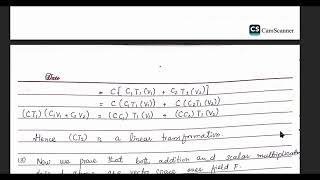 CS CamScanner
Date
= C[ C1 T1 (V1) + C2 T1 (V2)]
= C (C1 T1 (V1)) + C (C2 T1 (V2))
(CT1) (C1 V1 + C2 V2) = (CC1) T1 (V1) + (CC2) T1 (V2)
Hence (CT1) is a linear transformation
Now we prove that both addition and scalar multiplication
above are vector space over field F.